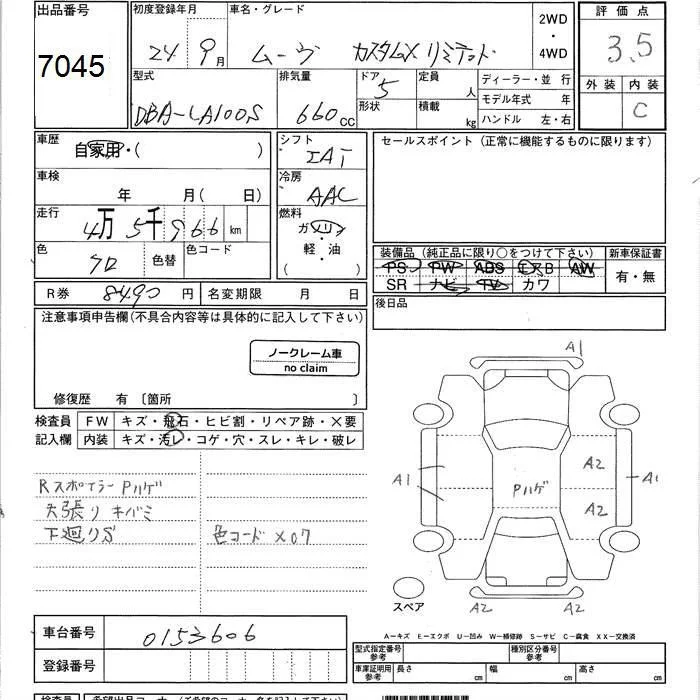 出品番号
7045
初度登録年月
24年9月
車名・グレード
ムーヴ カスタムX リミテッド
2WD
・
4WD
評価点
3.5
外装 内装
C
型式
DBA-LA100S
排気量
660cc
ドア
5
形状
定員
人
積載
kg
ディーラー・並行
モデル年式 年
ハンドル 左・右
車歴
自家用・( )
シフト
IAT
セールスポイント (正常に機能するものに限ります)
車検
年 月( 日)
冷房
AAC
走行
4万5千966km
燃料
ガソリン
・
軽・油
( )
色
クロ
色替
色コード
装備品 (純正品に限り○をつけて下さい)
PS PW ABS エアB AW
SR ナビ TV カワ
新車保証書
有・無
R券 8490円
名変期限 月 日
後日品
注意事項申告欄(不具合内容等は具体的に記入して下さい)
ノークレーム車
no claim
修復歴 有 〔箇所 〕
検査員
記入欄
FW キズ・飛石・ヒビ割・リペア跡・X要
内装 キズ・汚レ・コゲ・穴・スレ・キレ・破レ
Rスポイラー Pハゲ
天張り キバミ
下廻りS
色コード X07
A1
A1
A2
A1
Pハゲ
A2
A2
A2
スペア
A-キズ E-エクボ U-凹み W-補修跡 S-サビ C-腐食 XX-交換済
車台番号
0153606
登録番号
型式指定番号
参考
種別区分番号
参考
車庫証明用
参考
長さ cm
幅 cm
高さ cm
検査員
希望出品コーナー